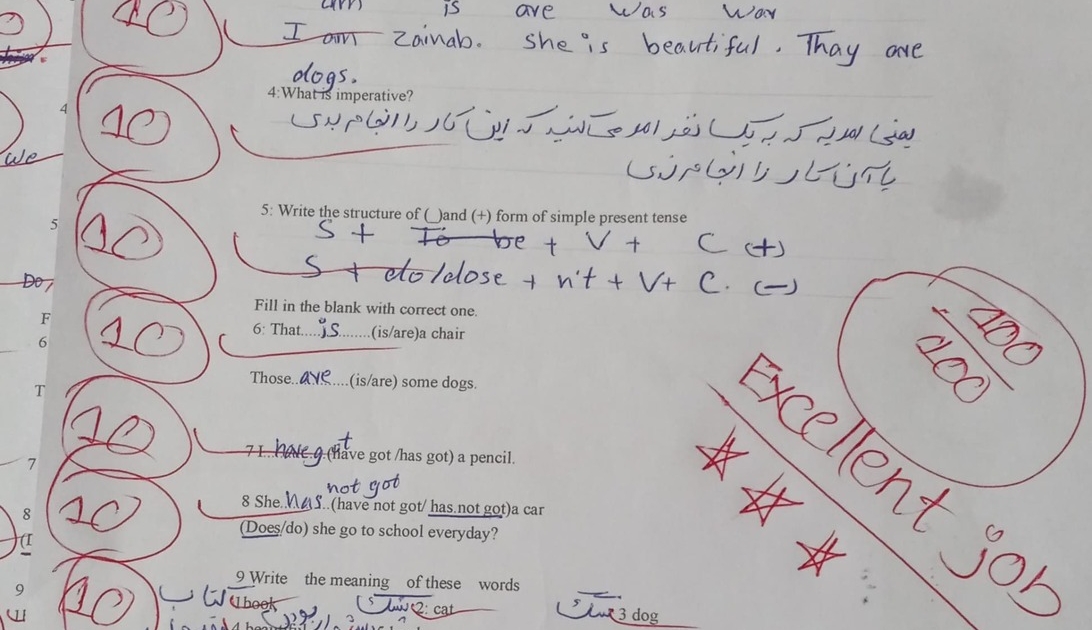 10 am is are was war
I am zainab. She is beautiful. Thay are
dogs.
4:What is imperative?
4 10 یعنی امر یه که به یک نفر امر می‌کنید که این کار را انجام بدی
یا آن کار را انجام ندی
we
5: Write the structure of (_)and (+) form of simple present tense
5 10 S + To be + V + C (+)
Do, S + do/dose + n't + V+ C. (−)
Fill in the blank with correct one.
F
6 10 6: That.....is........(is/are)a chair
T Those..are....(is/are) some dogs.
10
7 7 I...have got(have got /has got) a pencil.
not got
8 10 8 She..has..(have not got/ has not got)a car
(I (Does/do) she go to school everyday?
9 Write the meaning of these words
9 10 کتاب 1book 2: cat سگ 3 dog
100
100
Excellent job